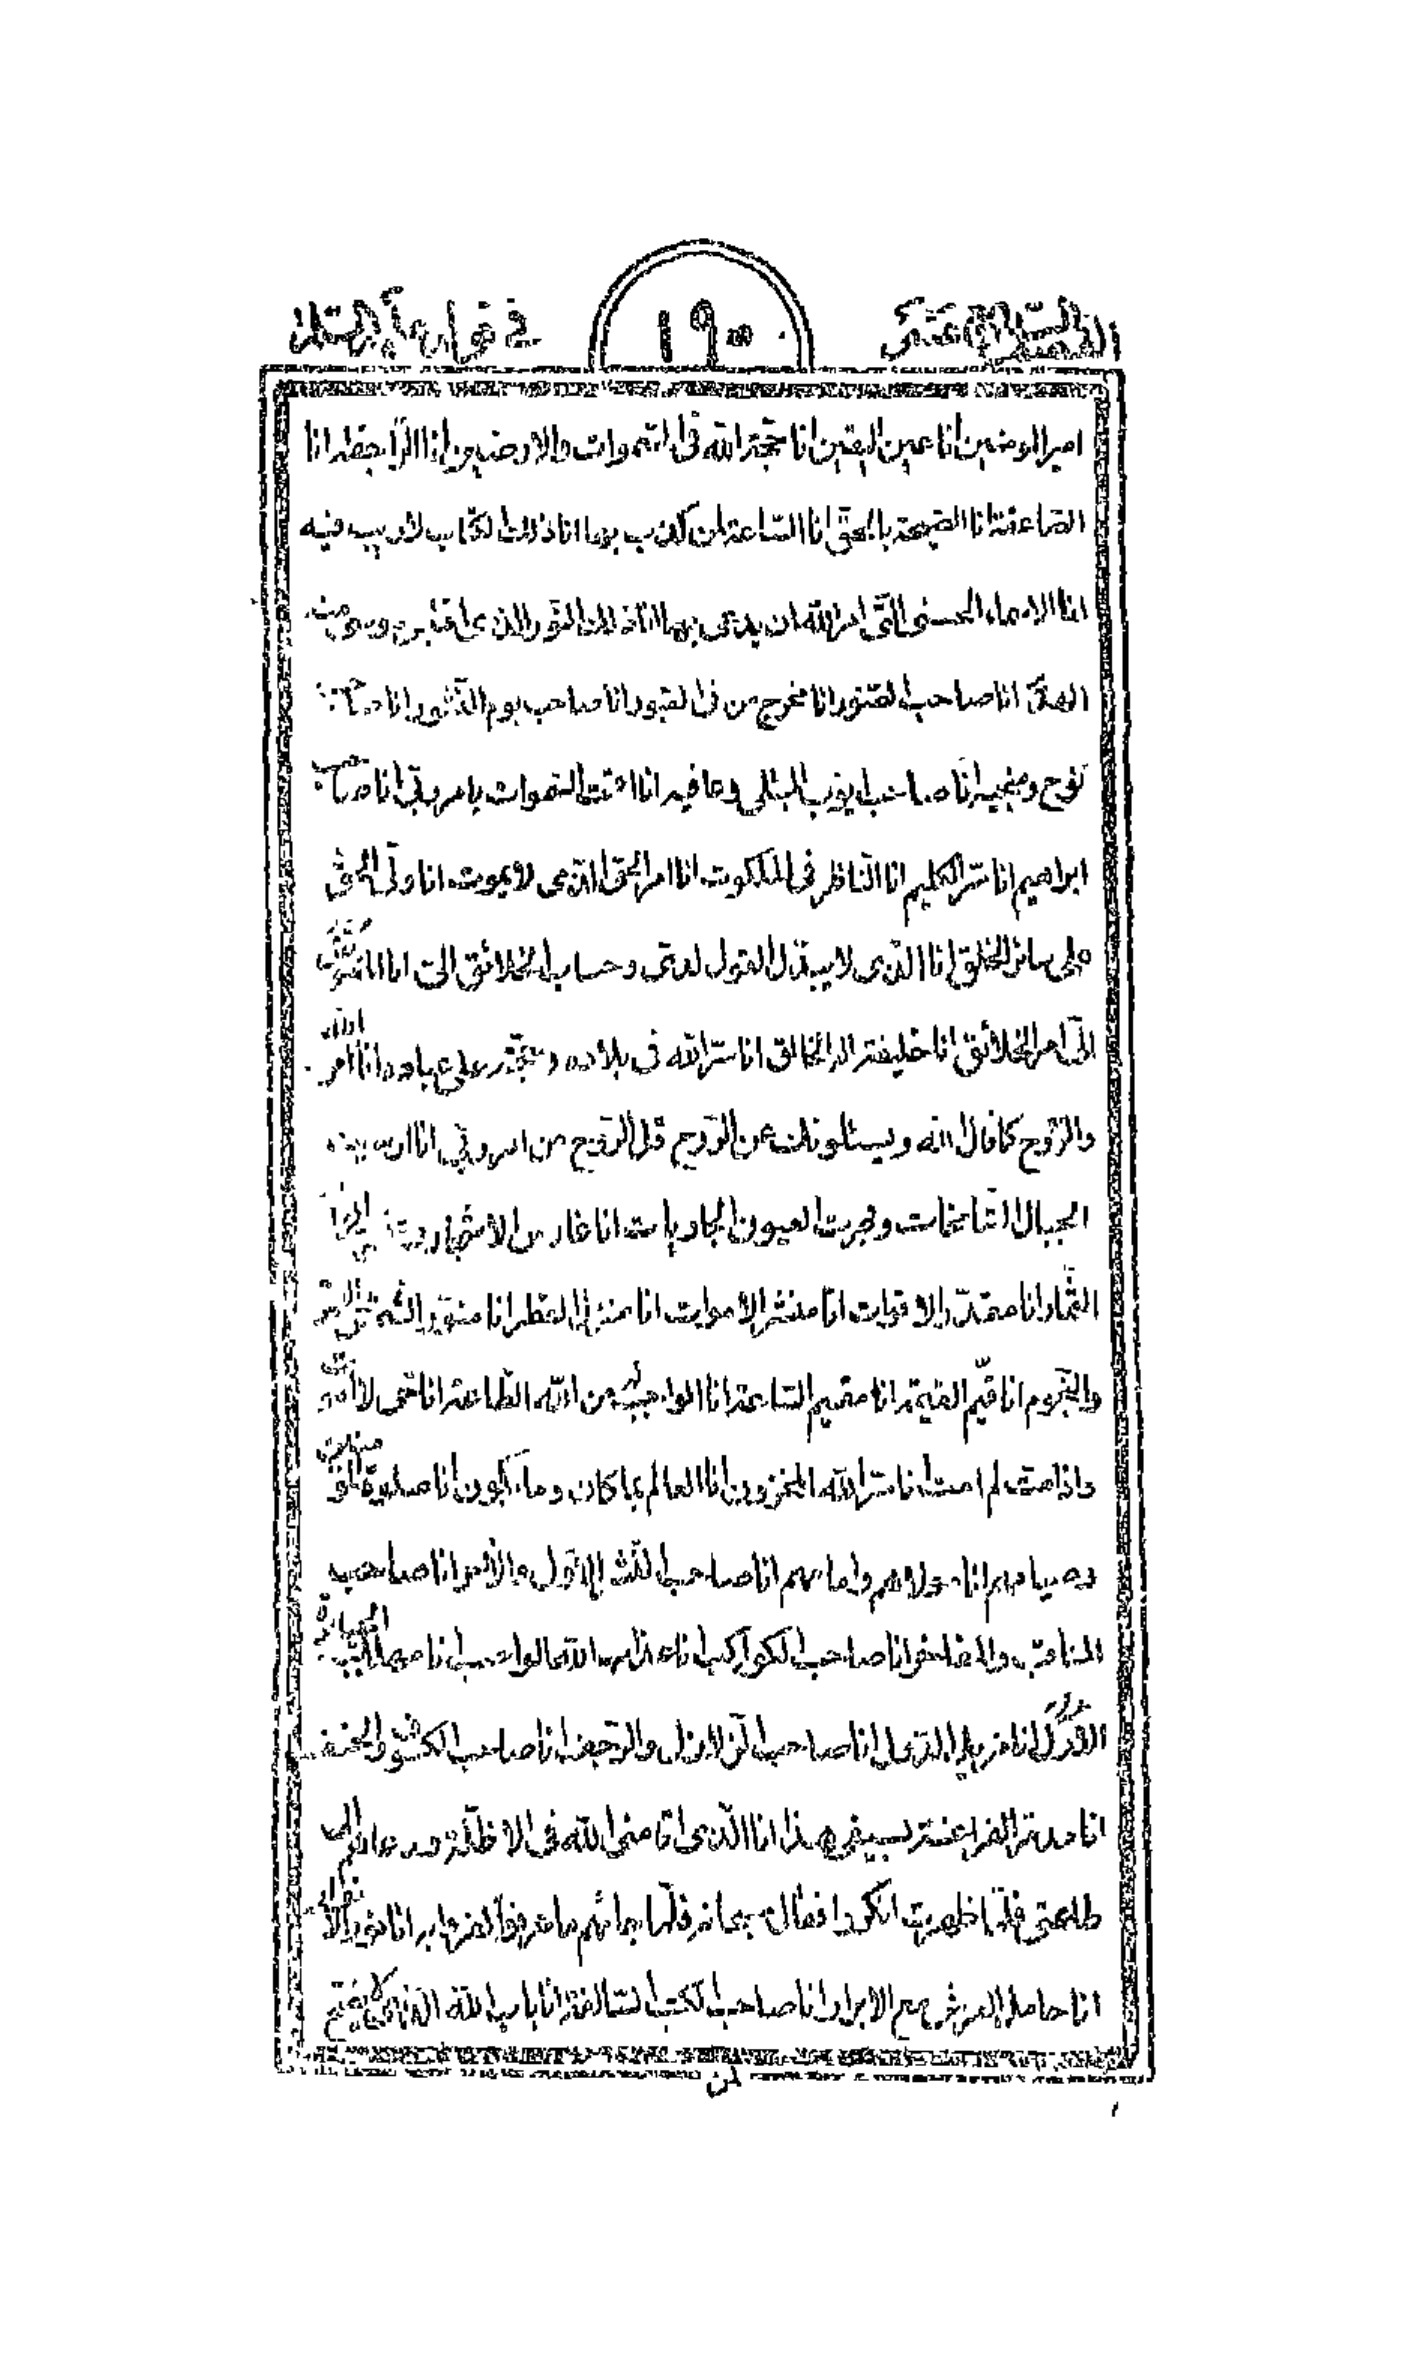 في قوله عليه السلام
١٩٠
امير المومنين انا عين اليقين انا حجة الله في السموات والارضين انا الراجفة انا
الصاعقة انا الصيحة بالحق انا الساعة لمن كذب بها انا ذلك الكتاب لا ريب فيه
انا الاسماء الحسنى التي امر الله ان يدعى بها انا ذلك النور الذي اقتبس موسى منه
الهدى انا صاحب الصور انا مخرج من في القبور انا صاحب يوم النشور انا صاحب
نوح ومنجيه انا صاحب ايوب المبتلى وشافيه انا اقمت السموات بامر ربي انا صاحب
ابراهيم انا سر الكليم انا الناظر في الملكوت انا امر الحي الذي لا يموت انا ولي الحق
على سائر الخلق انا الذي لا يبدل القول لدي وحساب الخلائق الي انا المفوض
الي امر الخلائق انا خليفة اله الخالق انا سر الله في بلاده وحجته على عباده انا امر الله
والروح كما قال الله ويسئلونك عن الروح قل الروح من امر ربي انا ارسيت
الجبال الشامخات وفجرت العيون الجاريات انا غارس الاشجار
الثمار انا مقدر الاقوات انا منشر الاموات انا منزل القطر انا منور الشمس والقمر
والنجوم انا قيم القيمة انا مقيم الساعة انا الواجب له من الله الطاعة انا حي لا اموت
واذا مت لم امت انا سر الله المخزون انا العالم بما كان وما يكون انا صلوة المؤمنين
وصيامهم انا مولاهم وامامهم انا صاحب النشر الاول والاخر انا صاحب
المناقب والمفاخر انا صاحب الكواكب انا عذاب الله الواصب انا مهلك الجبابرة
الاول انا مزيل الدول انا صاحب الزلازل والرجف انا صاحب الكسوف والخسوف
انا مدمر الفراعنة بسيفي هذا انا الذي اقامني الله في الاظلة ودعاهم الى
طاعتي فلما ظهرت انكروا فقال سبحانه فلما جائهم ما عرفوا كفروا به انا نور الانوار
انا حامل العرش مع الابرار انا صاحب الكتب السالفة انا باب الله الذي لا يفتح
لمن